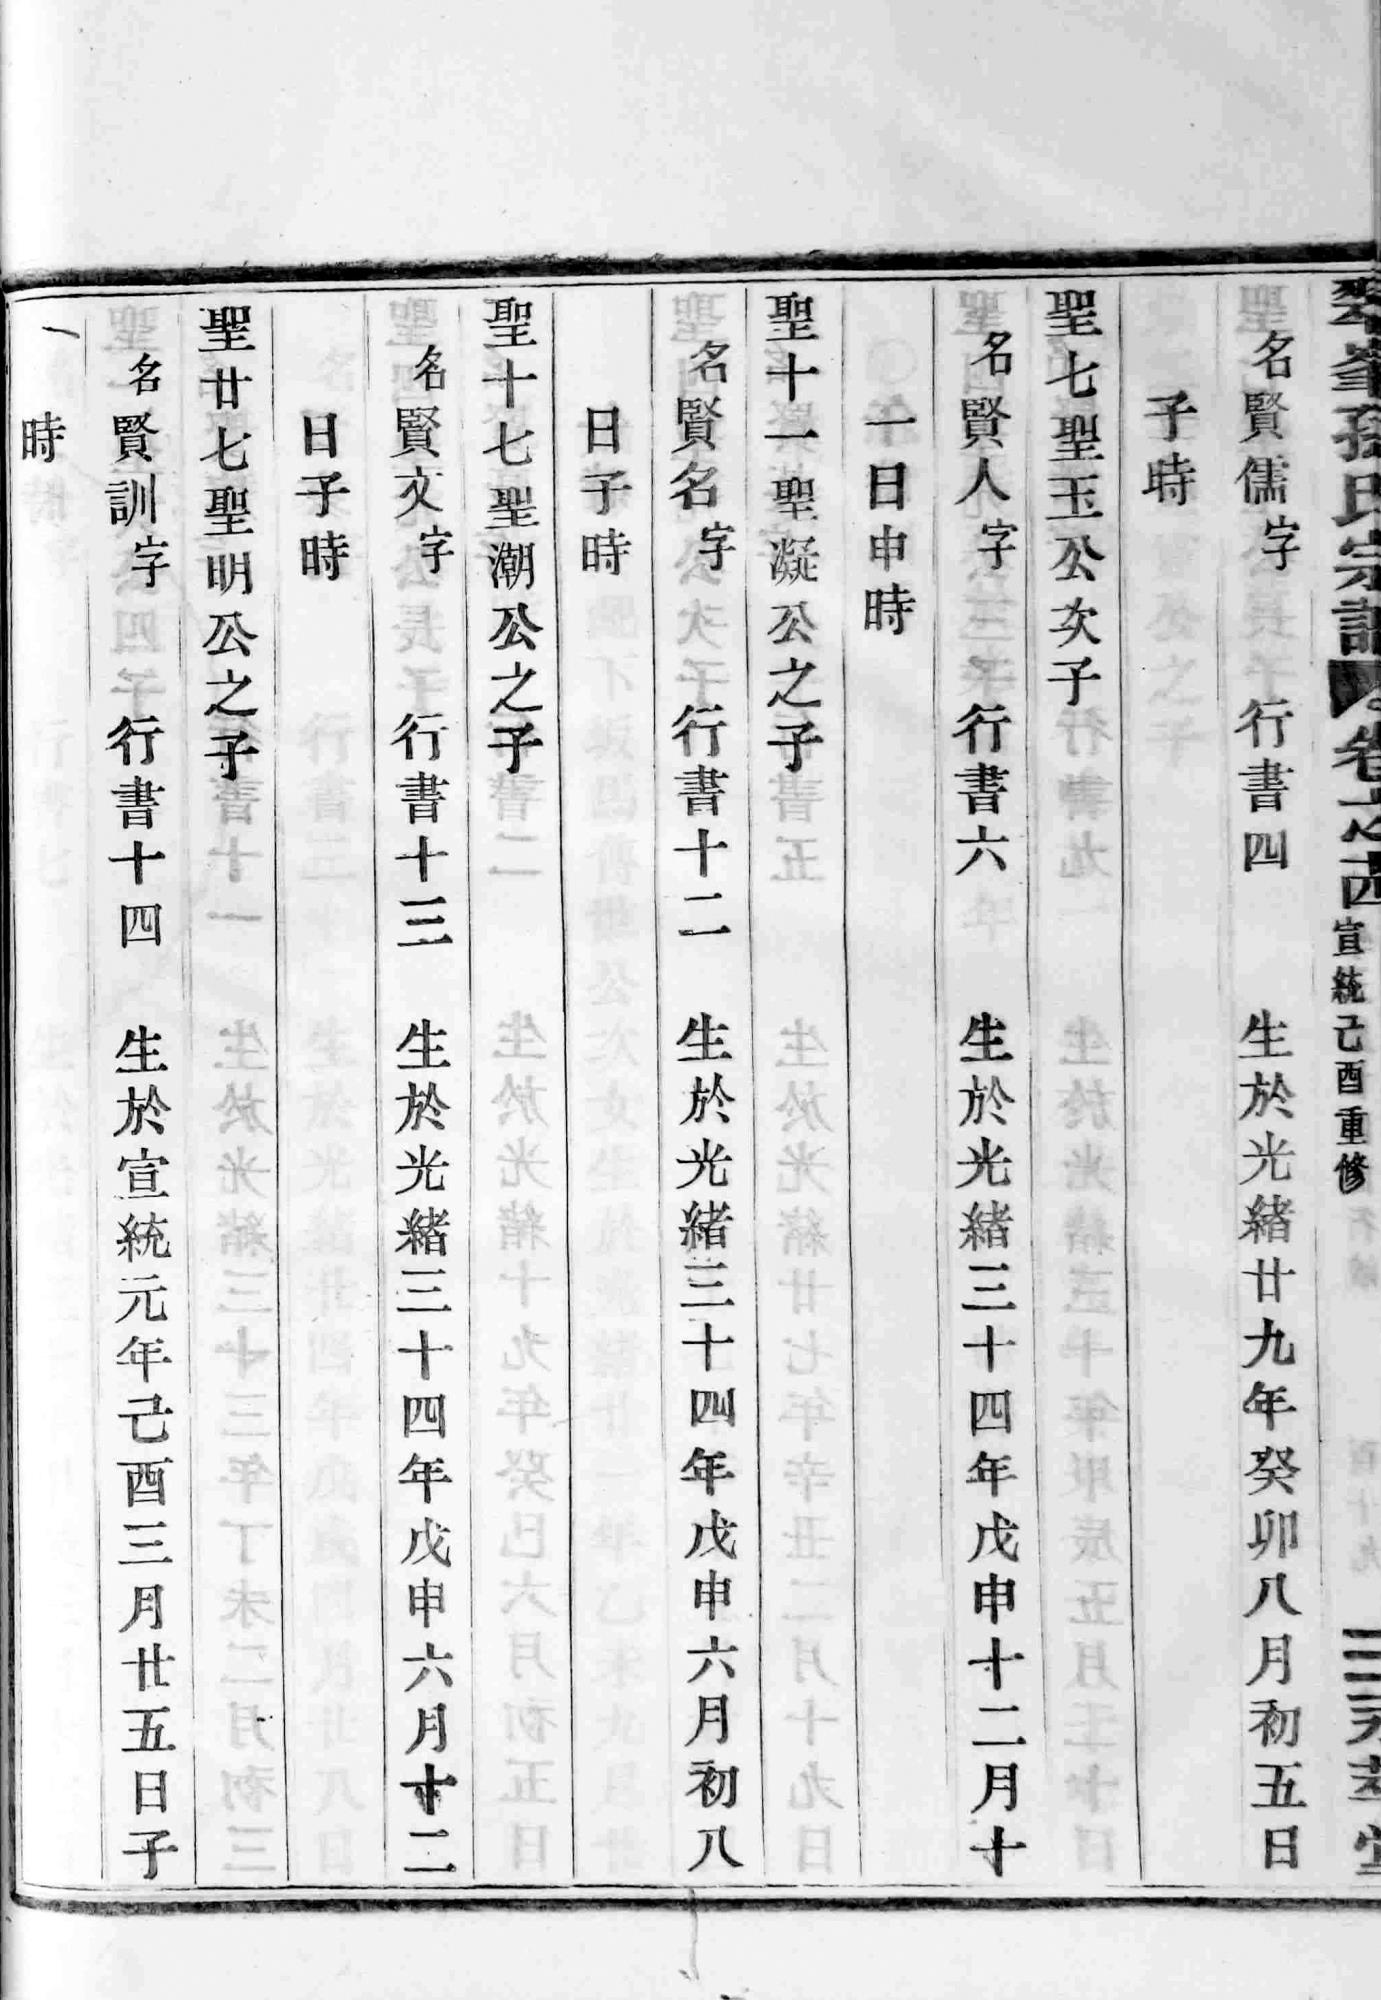 峯孫氏宗譜 卷之四 宣統己酉重修
名賢儒 字 行書四 生於光緒廿九年癸卯八月初五日
子時
聖七聖玉公次子
名賢人 字 行書六 生於光緒三十四年戊申十二月十
一日申時
聖十一聖凝公之子
名賢名 字 行書十二 生於光緒三十四年戊申六月初八
日子時
聖十七聖潮公之子
名賢文 字 行書十三 生於光緒三十四年戊申六月十二
日子時
聖廿七聖明公之子
名賢訓 字 行書十四 生於宣統元年己酉三月廿五日子
時